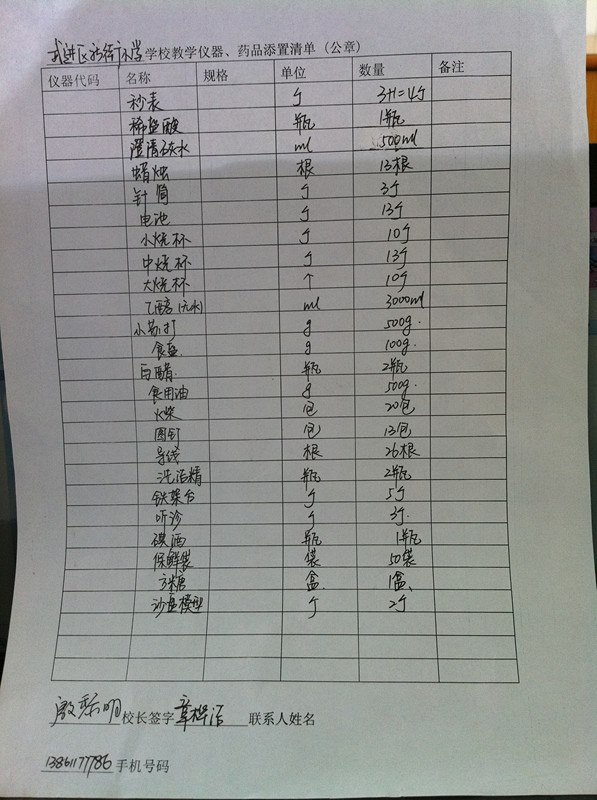 武进区新街小学学校教学仪器、药品添置清单（公章）
仪器代码 名称 规格 单位 数量 备注
秒表 个 3+1=4个
稀盐酸 瓶 1瓶
澄清石灰水 ml 500ml
蜡烛 根 13根
针筒 个 3个
电池 个 13个
小烧杯 个 10个
中烧杯 个 13个
大烧杯 个 10个
乙醇(无水) ml 3000ml
小苏打 g 500g.
食盐 g 100g.
白醋 瓶 2瓶
食用油 g 500g.
火柴 包 20包
图钉 包 13包
导线 根 26根
洗洁精 瓶 2瓶
铁架台 个 5个
听诊 个 3个.
碘酒 瓶 1瓶
保鲜袋 袋 50袋
方糖 盒 1盒
沙盘模型 个 2个
校长签字 联系人姓名
13861177786 手机号码